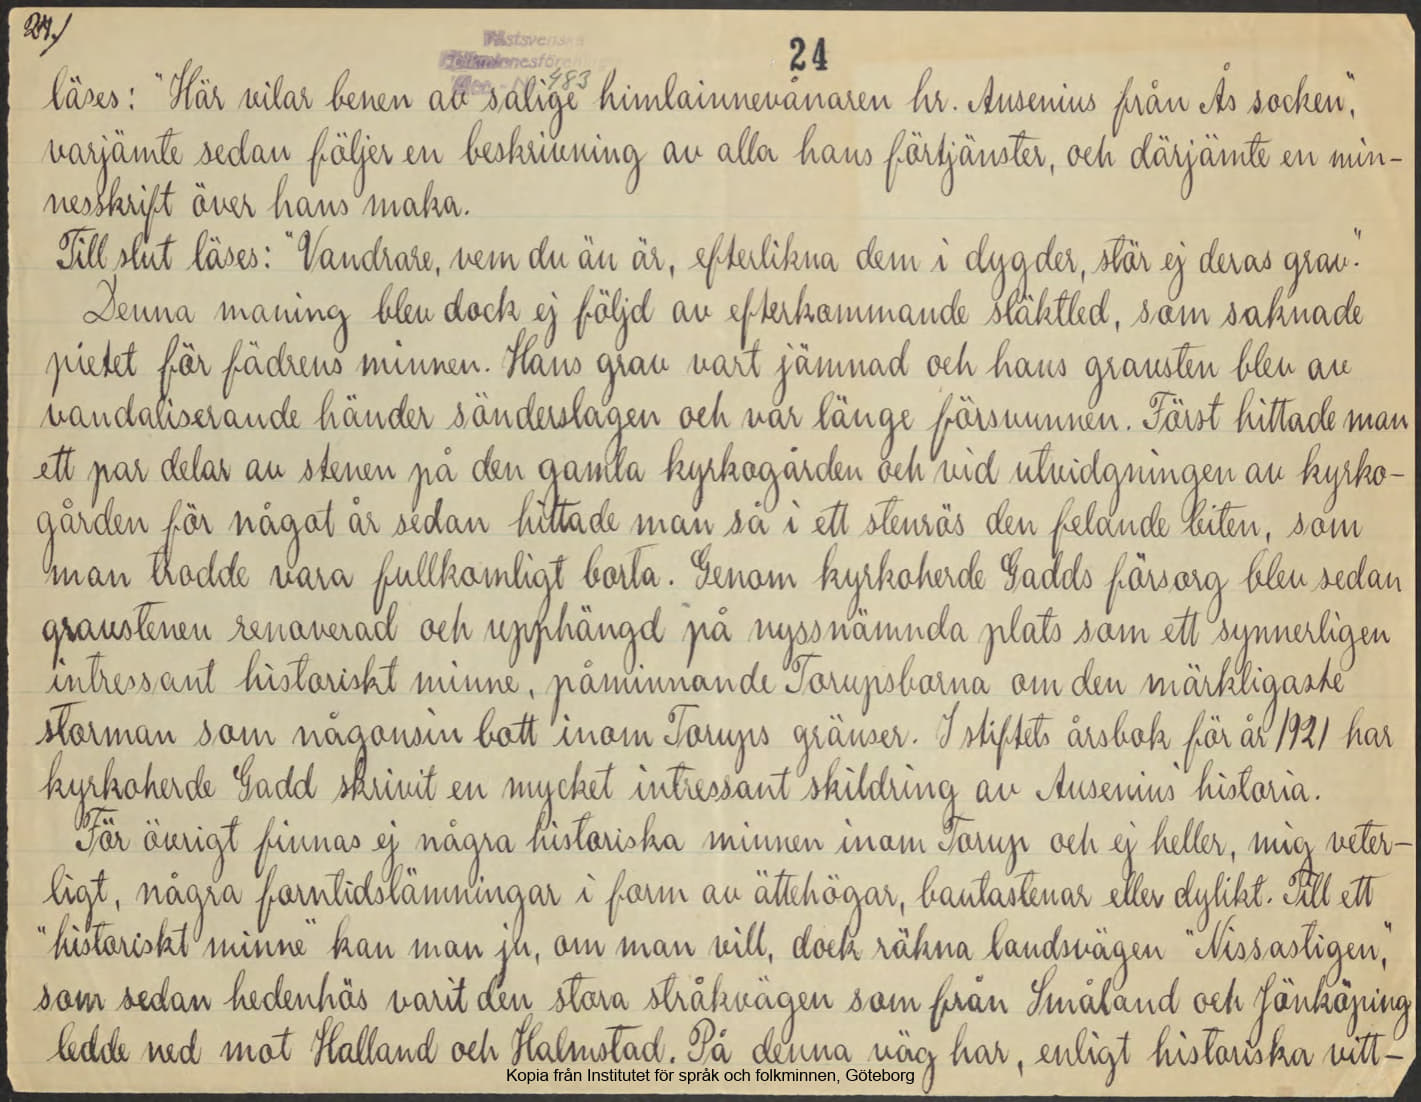 24./
24
Västsvenska
Folkminnesföre
483
läses: "Här vilar benen av salige himlainnevånaren hr. Ausenius från Ås socken",
varjämte sedan följer en beskrivning av alla hans förtjänster, och därjämte en min-
nesskrift över hans maka.
Till slut läses: "Vandrare, vem du än är, efterlikna dem i dygder, stör ej deras grav."
Denna maning blev dock ej följd av efterkommande släktled, som saknade
pietet för fädrens minnen. Hans grav vart jämnad och hans gravsten blev av
vandaliserande händer sönderslagen och var länge försvunnen. Först hittade man
ett par delar av stenen på den gamla kyrkogården och vid utvidgningen av kyrko-
gården för något år sedan hittade man så i ett stenrös den felande biten, som
man trodde vara fullkomligt borta. Genom kyrkoherde Gadds försorg blev sedan
gravstenen renoverad och upphängd på nyssnämnda plats som ett synnerligen
intressant historiskt minne, påminnande Torupsborna om den märkligaste
storman som någonsin bott inom Torups gränser. I stiftets årsbok för år 1921 har
kyrkoherde Gadd skrivit en mycket intressant skildring av Ausenius' historia.
För övrigt finnas ej några historiska minnen inom Torup och ej heller, mig veter-
ligt, några forntidslämningar i form av ättehögar, bautastenar eller dylikt. Till ett
"historiskt minne" kan man ju, om man vill, dock räkna landsvägen "Nissastigen",
som sedan hedenhös varit den stora stråkvägen som från Småland och Jönköping
ledde ned mot Halland och Halmstad. På denna väg har, enligt historiska vitt-
Kopia från Institutet för språk och folkminnen, Göteborg